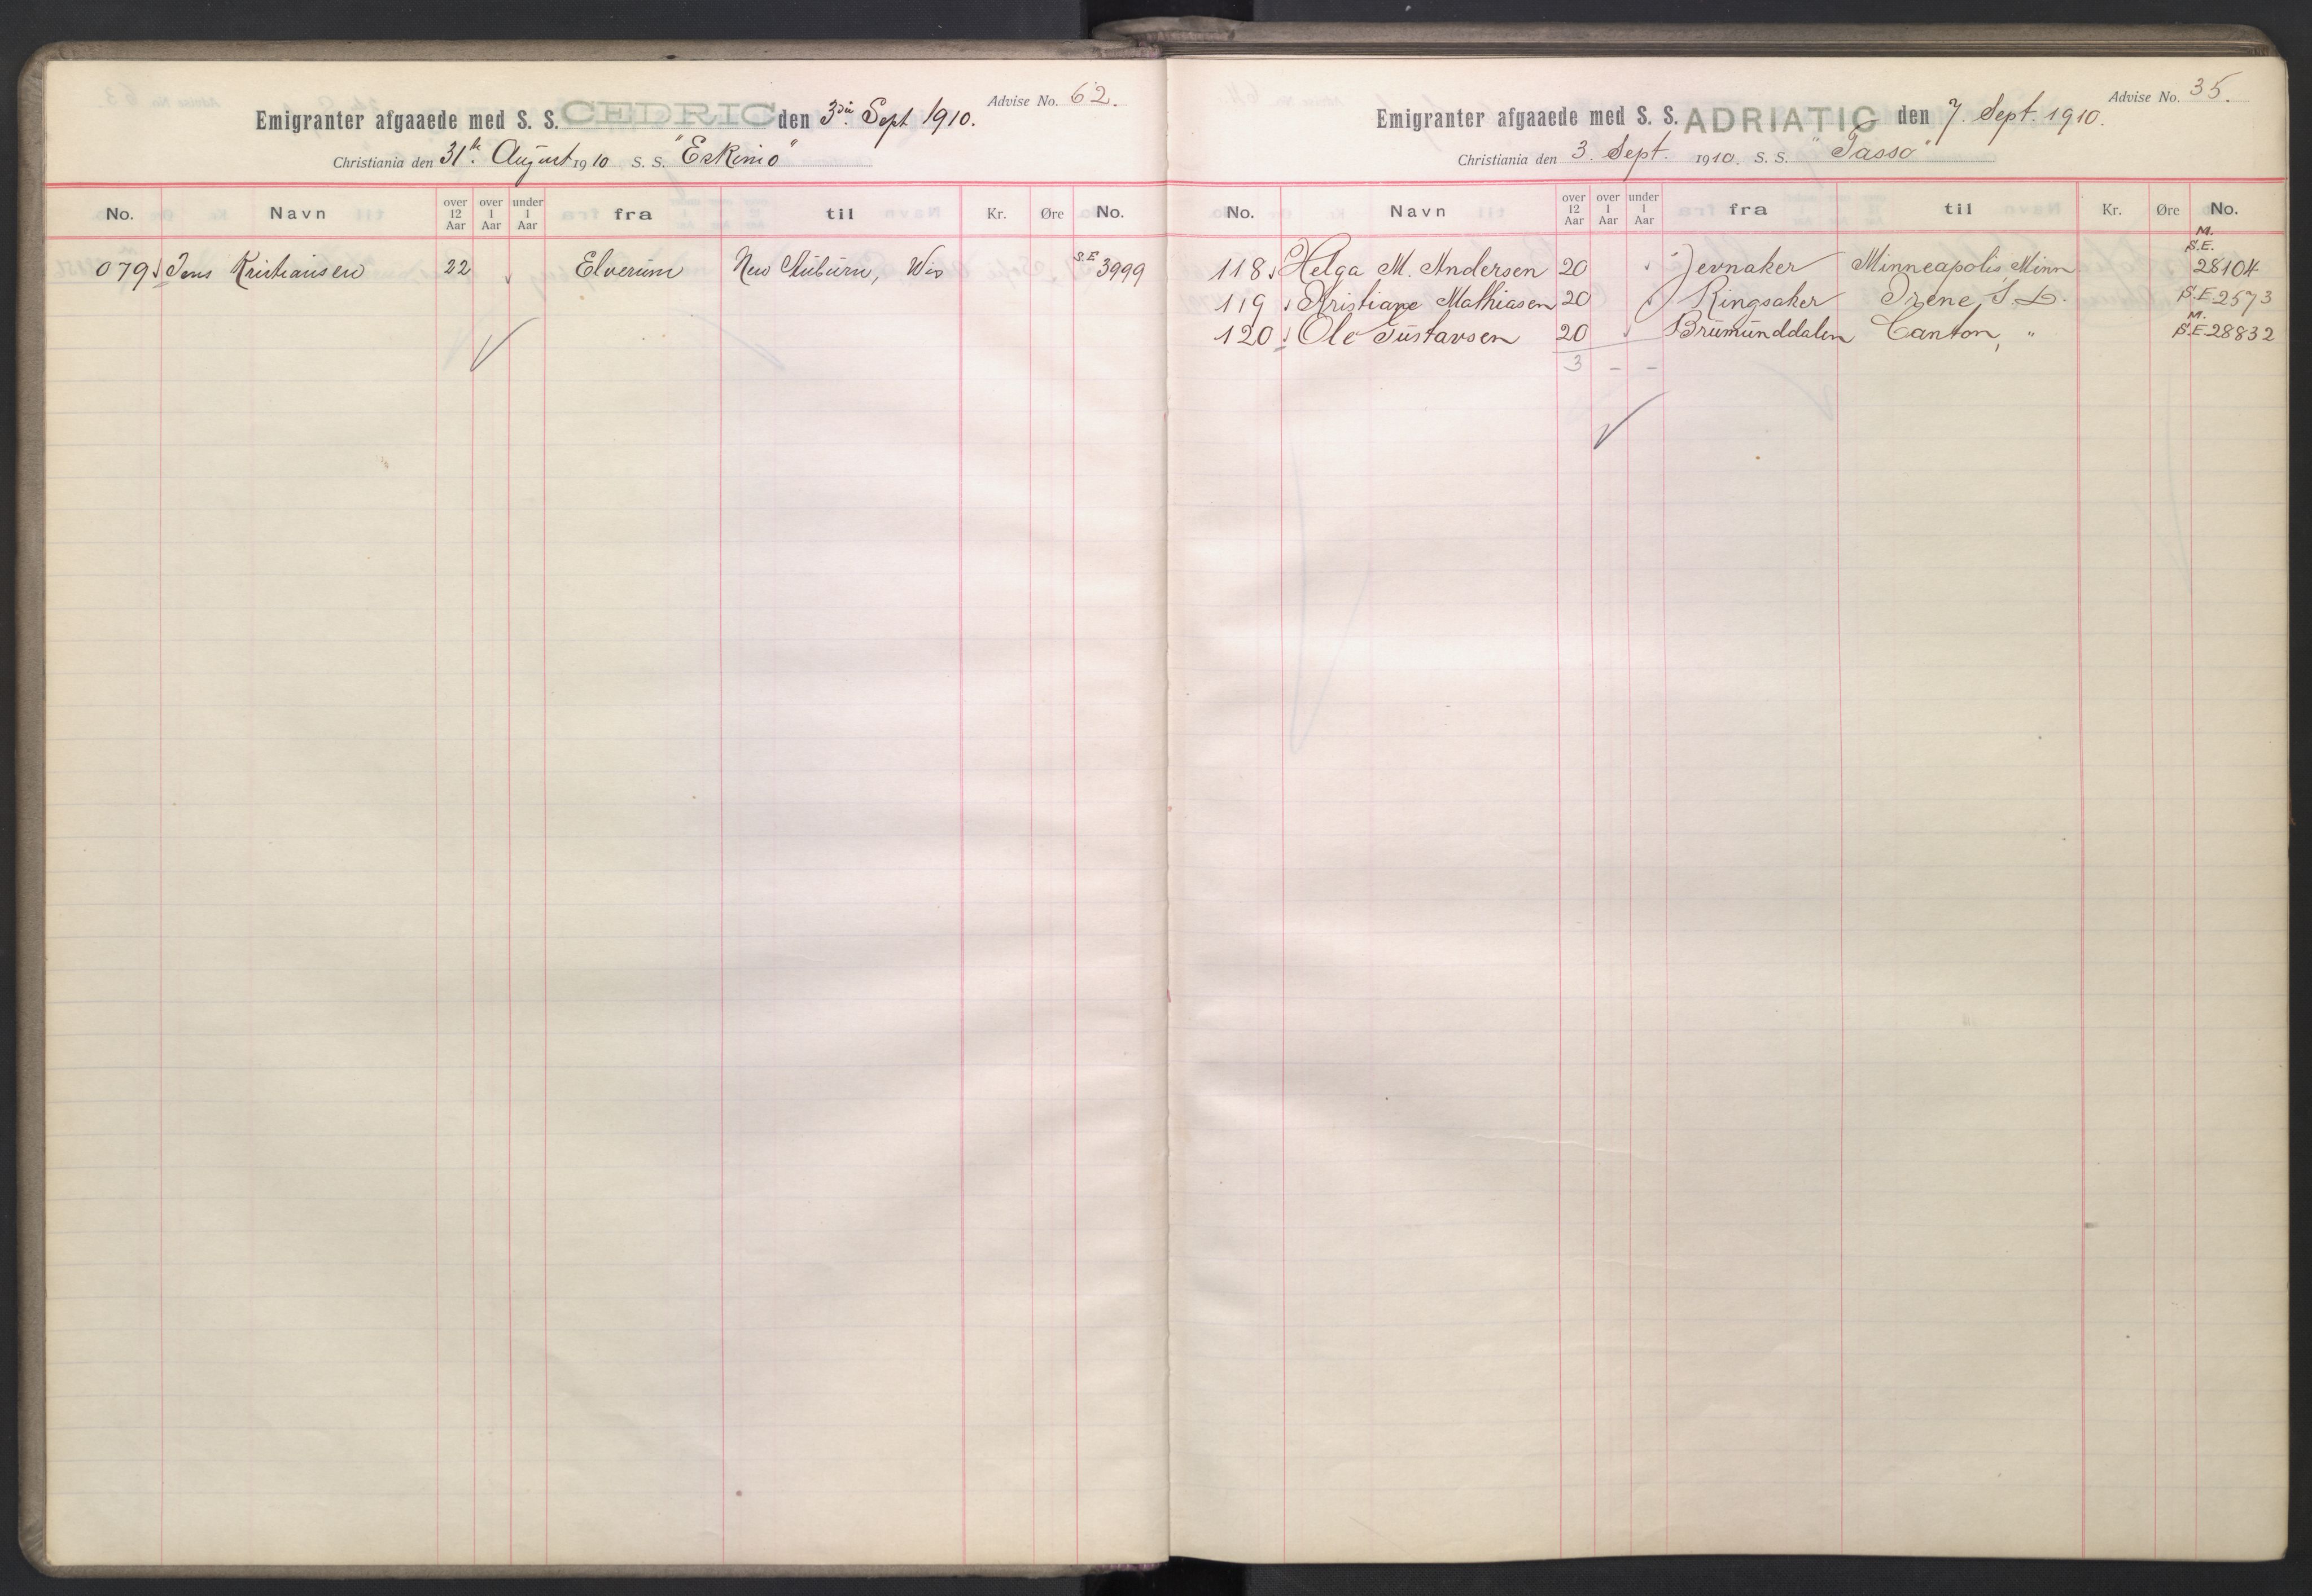 Advise No. 62.
Emigranter afgaaede med S. S. CEDRIC den 3die Sept 1910.
Christiania den 31te August 1910 S. S. "Eskimo"
No. Navn over 12 Aar over 1 Aar under 1 Aar fra til Kr. Øre No.
079 Jens Kristiansen 22 Elverum New Auburn, Wis S.E 3999
Advise No. 35.
Emigranter afgaaede med S. S. ADRIATIC den 7. Sept. 1910.
Christiania den 3. Sept. 1910. S. S. "Tasso"
No. Navn over 12 Aar over 1 Aar under 1 Aar fra til Kr. Øre No.
118 Helga M. Andersen 20 Jevnaker Minneapolis, Minn. M. S.E. 28104
119 Kristiane Mathiasen 20 Ringsaker Irene, S. D. S.E 2573
120 Ole Gustavsen 20 Brumunddalen Canton, " M. S.E 28832
3 - -